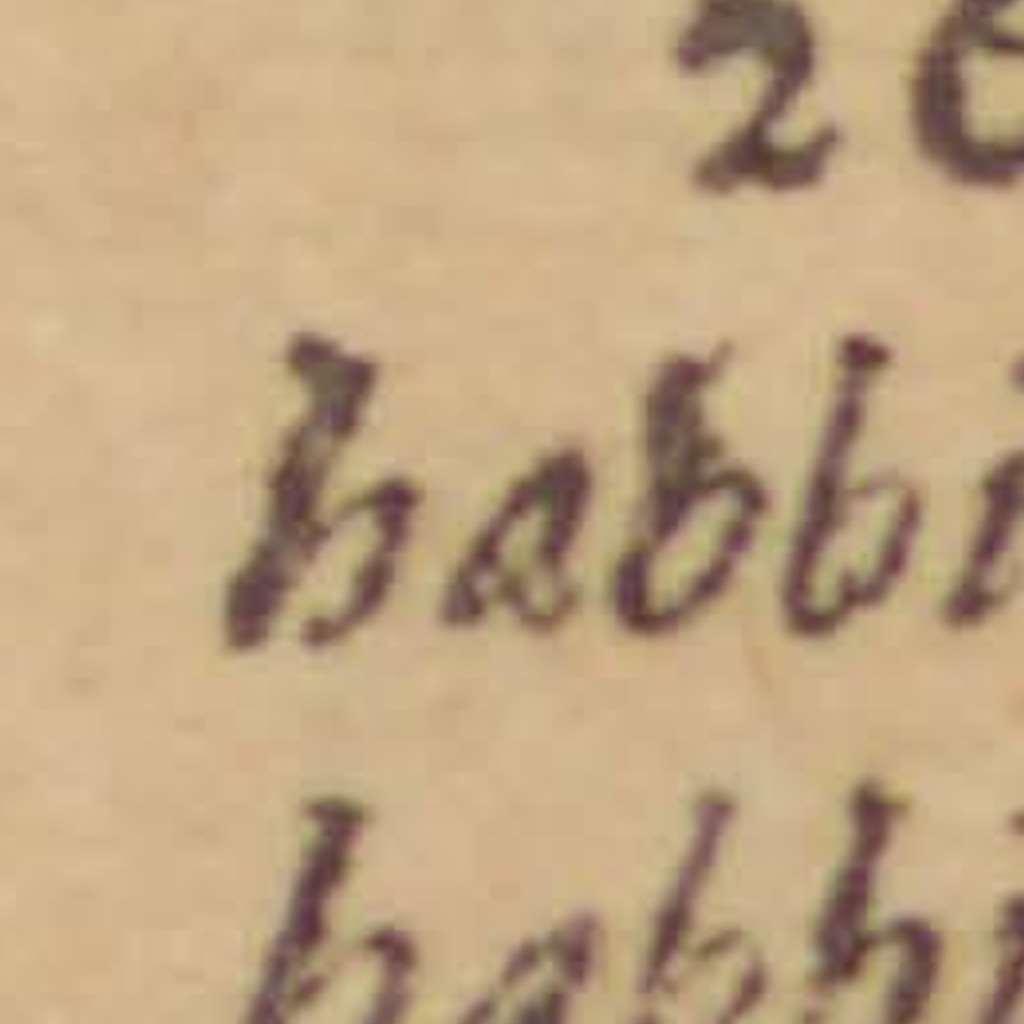 26
habbi
habbi